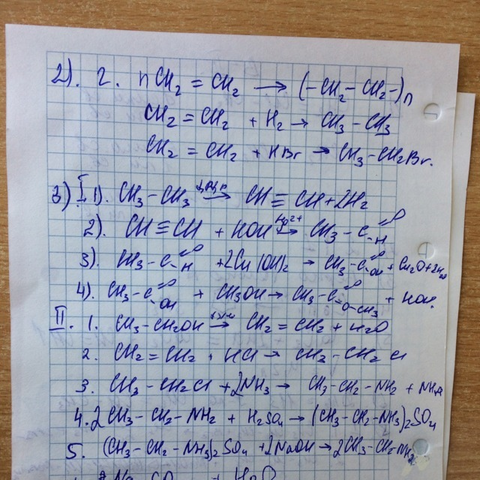 2). 2. nCH₂ = CH₂ → (-CH₂ - CH₂-)n
CH₂ = CH₂ + H₂ → CH₃ - CH₃
CH₂ = CH₂ + HBr → CH₃ - CH₂Br.
3) I 1). CH₃ - CH₃ → CH ≡ CH + 2H₂
2). CH ≡ CH + HOH Hg²⁺→ CH₃ - C =O -H
3). CH₃ - C =O -H + 2Cu(OH)₂ → CH₃ - C =O OH + Cu₂O + 2H₂O
4). CH₃ - C =O OH + CH₃OH → CH₃ - C =O O - CH₃ + HOH.
II. 1. CH₃ - CH₂OH → CH₂ = CH₂ + H₂O
2. CH₂ = CH₂ + HCl → CH₃ - CH₂Cl
3. CH₃ - CH₂Cl + 2NH₃ → CH₃ - CH₂ - NH₂ +
4. 2CH₃ - CH₂ - NH₂ + H₂SO₄ → (CH₃ - CH₂ - NH₃)₂SO₄
5. (CH₃ - CH₂ - NH₃)₂SO₄ + 2NaOH → 2CH₃ - CH₂ - NH₂